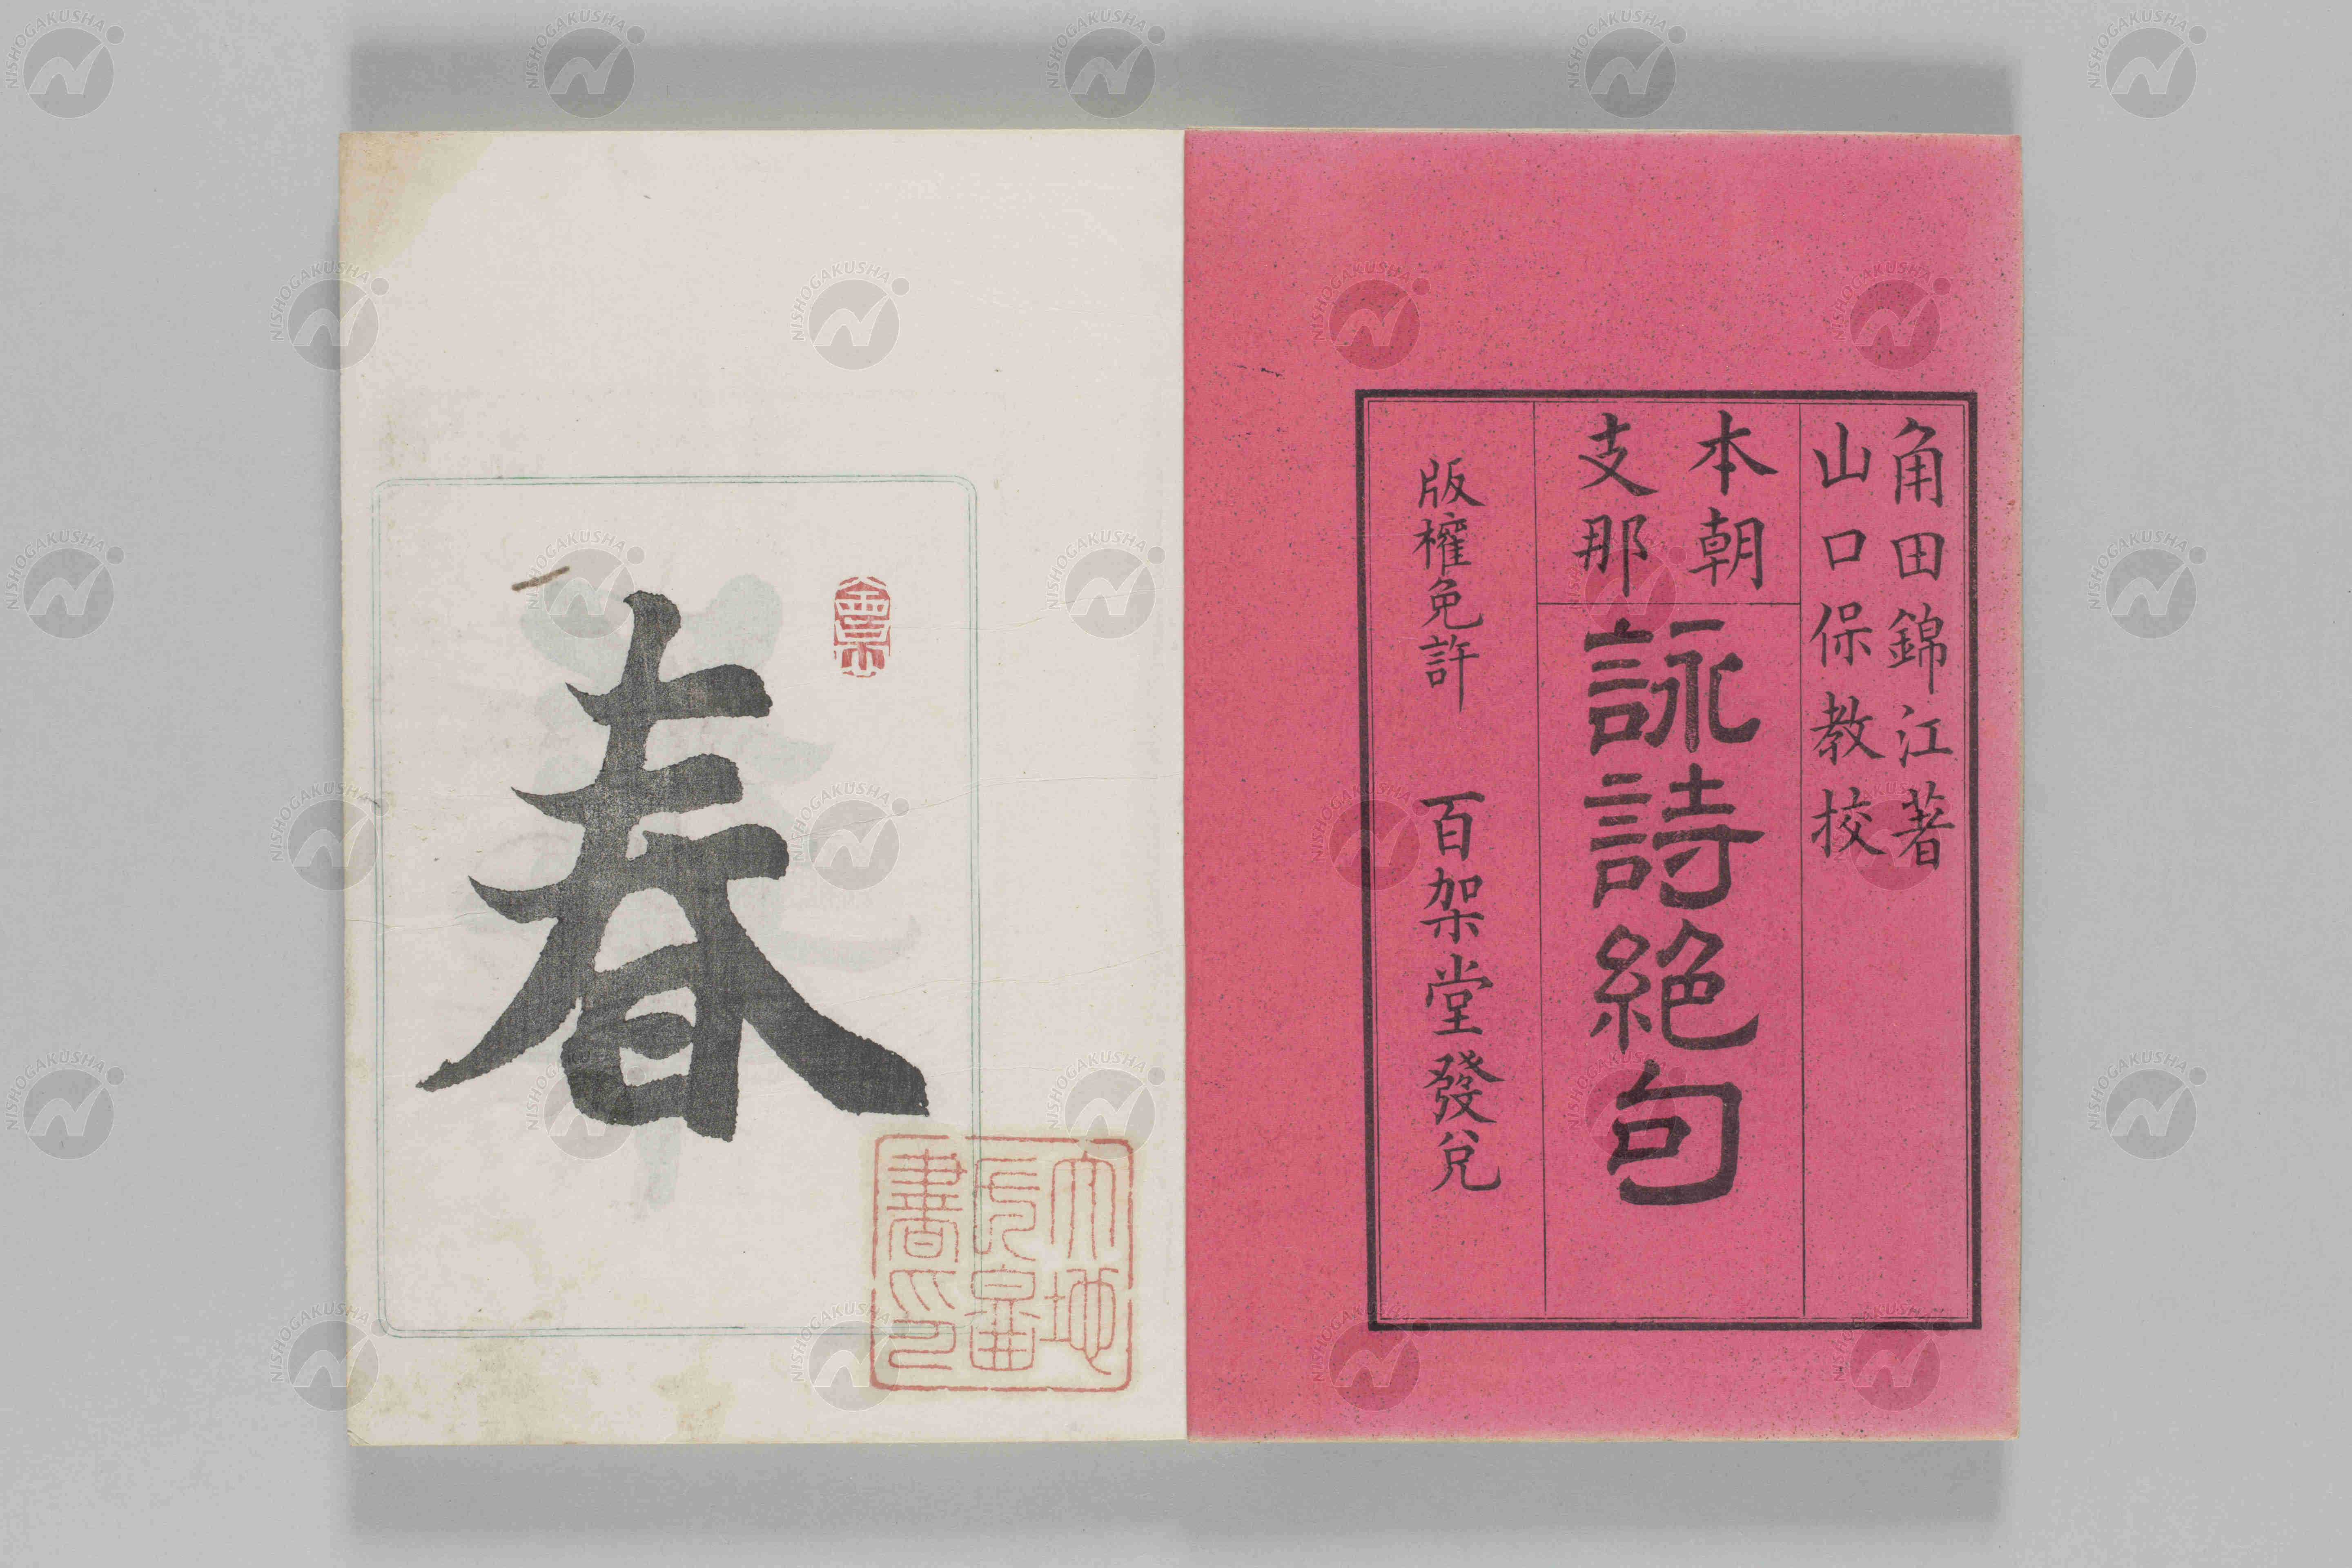 角田錦江著
山口保教校
本朝
支那
詠詩絶句
版權免許 百架堂發兌
春
NISHOGAKUSHA